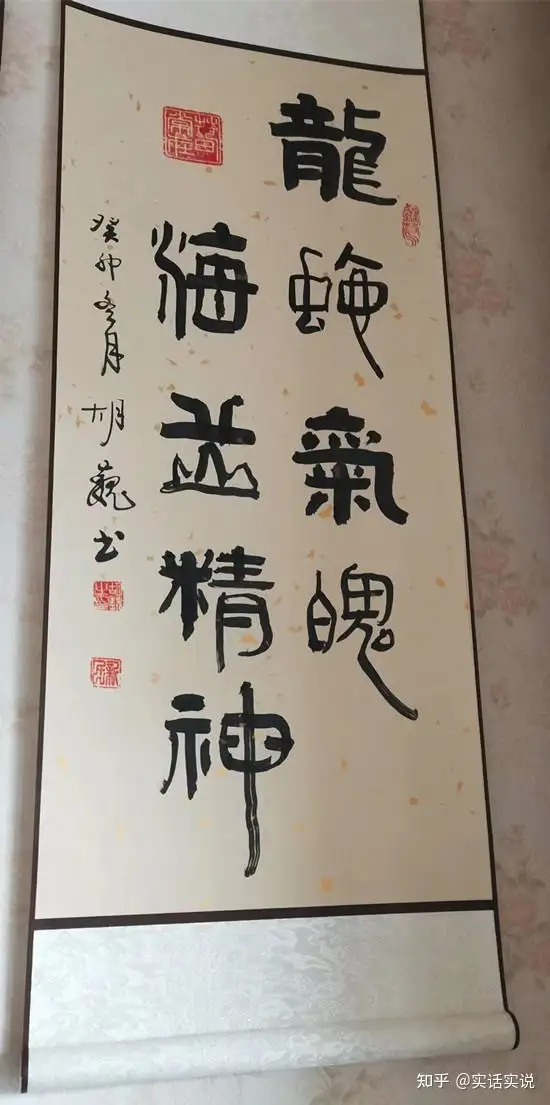 龍蛇氣魄
海岳精神
癸卯冬月 胡巍书
知乎 @实话实说